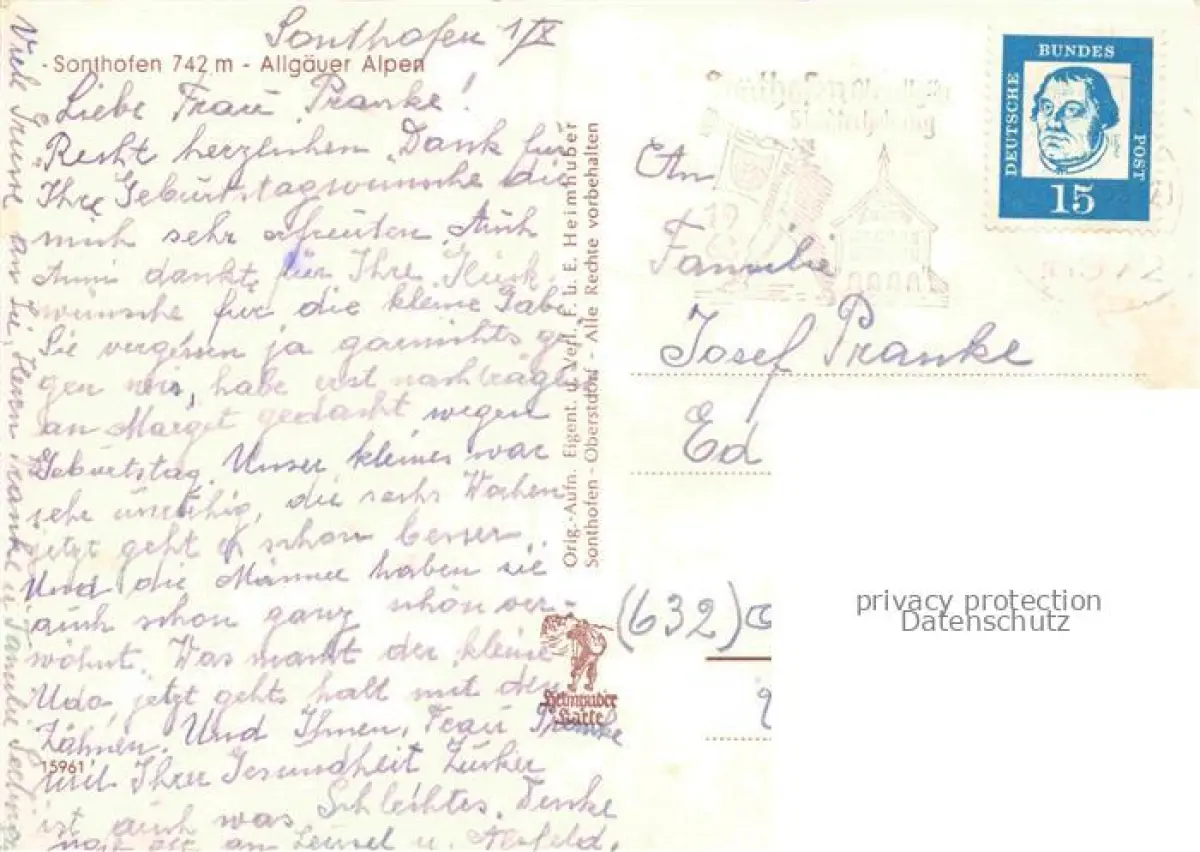 Sonthofen 1/X
- Sonthofen 742 m - Allgäuer Alpen
Liebe Frau Pranke!
Recht herzlichen Dank für
Ihre Geburtstagswünsche die
mich sehr erfreuten. Auch
Anni dankt für Ihre Glück
wünsche für die kleine Gabi
Sie vergessen ja garnichts ge
gen mir, habe erst nachträglich
an Margot gedacht wegen
Geburtstag. Unser kleines war
sehr unruhig, die sechs Wochen
jetzt geht es schon besser.
Und die Männer haben sie
auch schon ganz schön ver-
wöhnt. Was macht der kleine
Udo, jetzt gehts halt mit den
Zähnen. Und Ihnen, Frau Pranke
15961
und Ihrer Gesundheit Zucker
ist auch was Schlechtes. Denke
noch oft an u.
Viele Grüsse an Sie, Herrn Pranke u. Familie
Orig.-Aufn. Eigent. u. Verl. F. u. E. Heimhuber
Sonthofen - Oberstdorf - Alle Rechte vorbehalten
Heimhuber
Karte
Sonthofen
Stadterhebung
DEUTSCHE
BUNDES
POST
15
An
Familie
Josef Pranke
Ed
(632)
privacy protection
Datenschutz